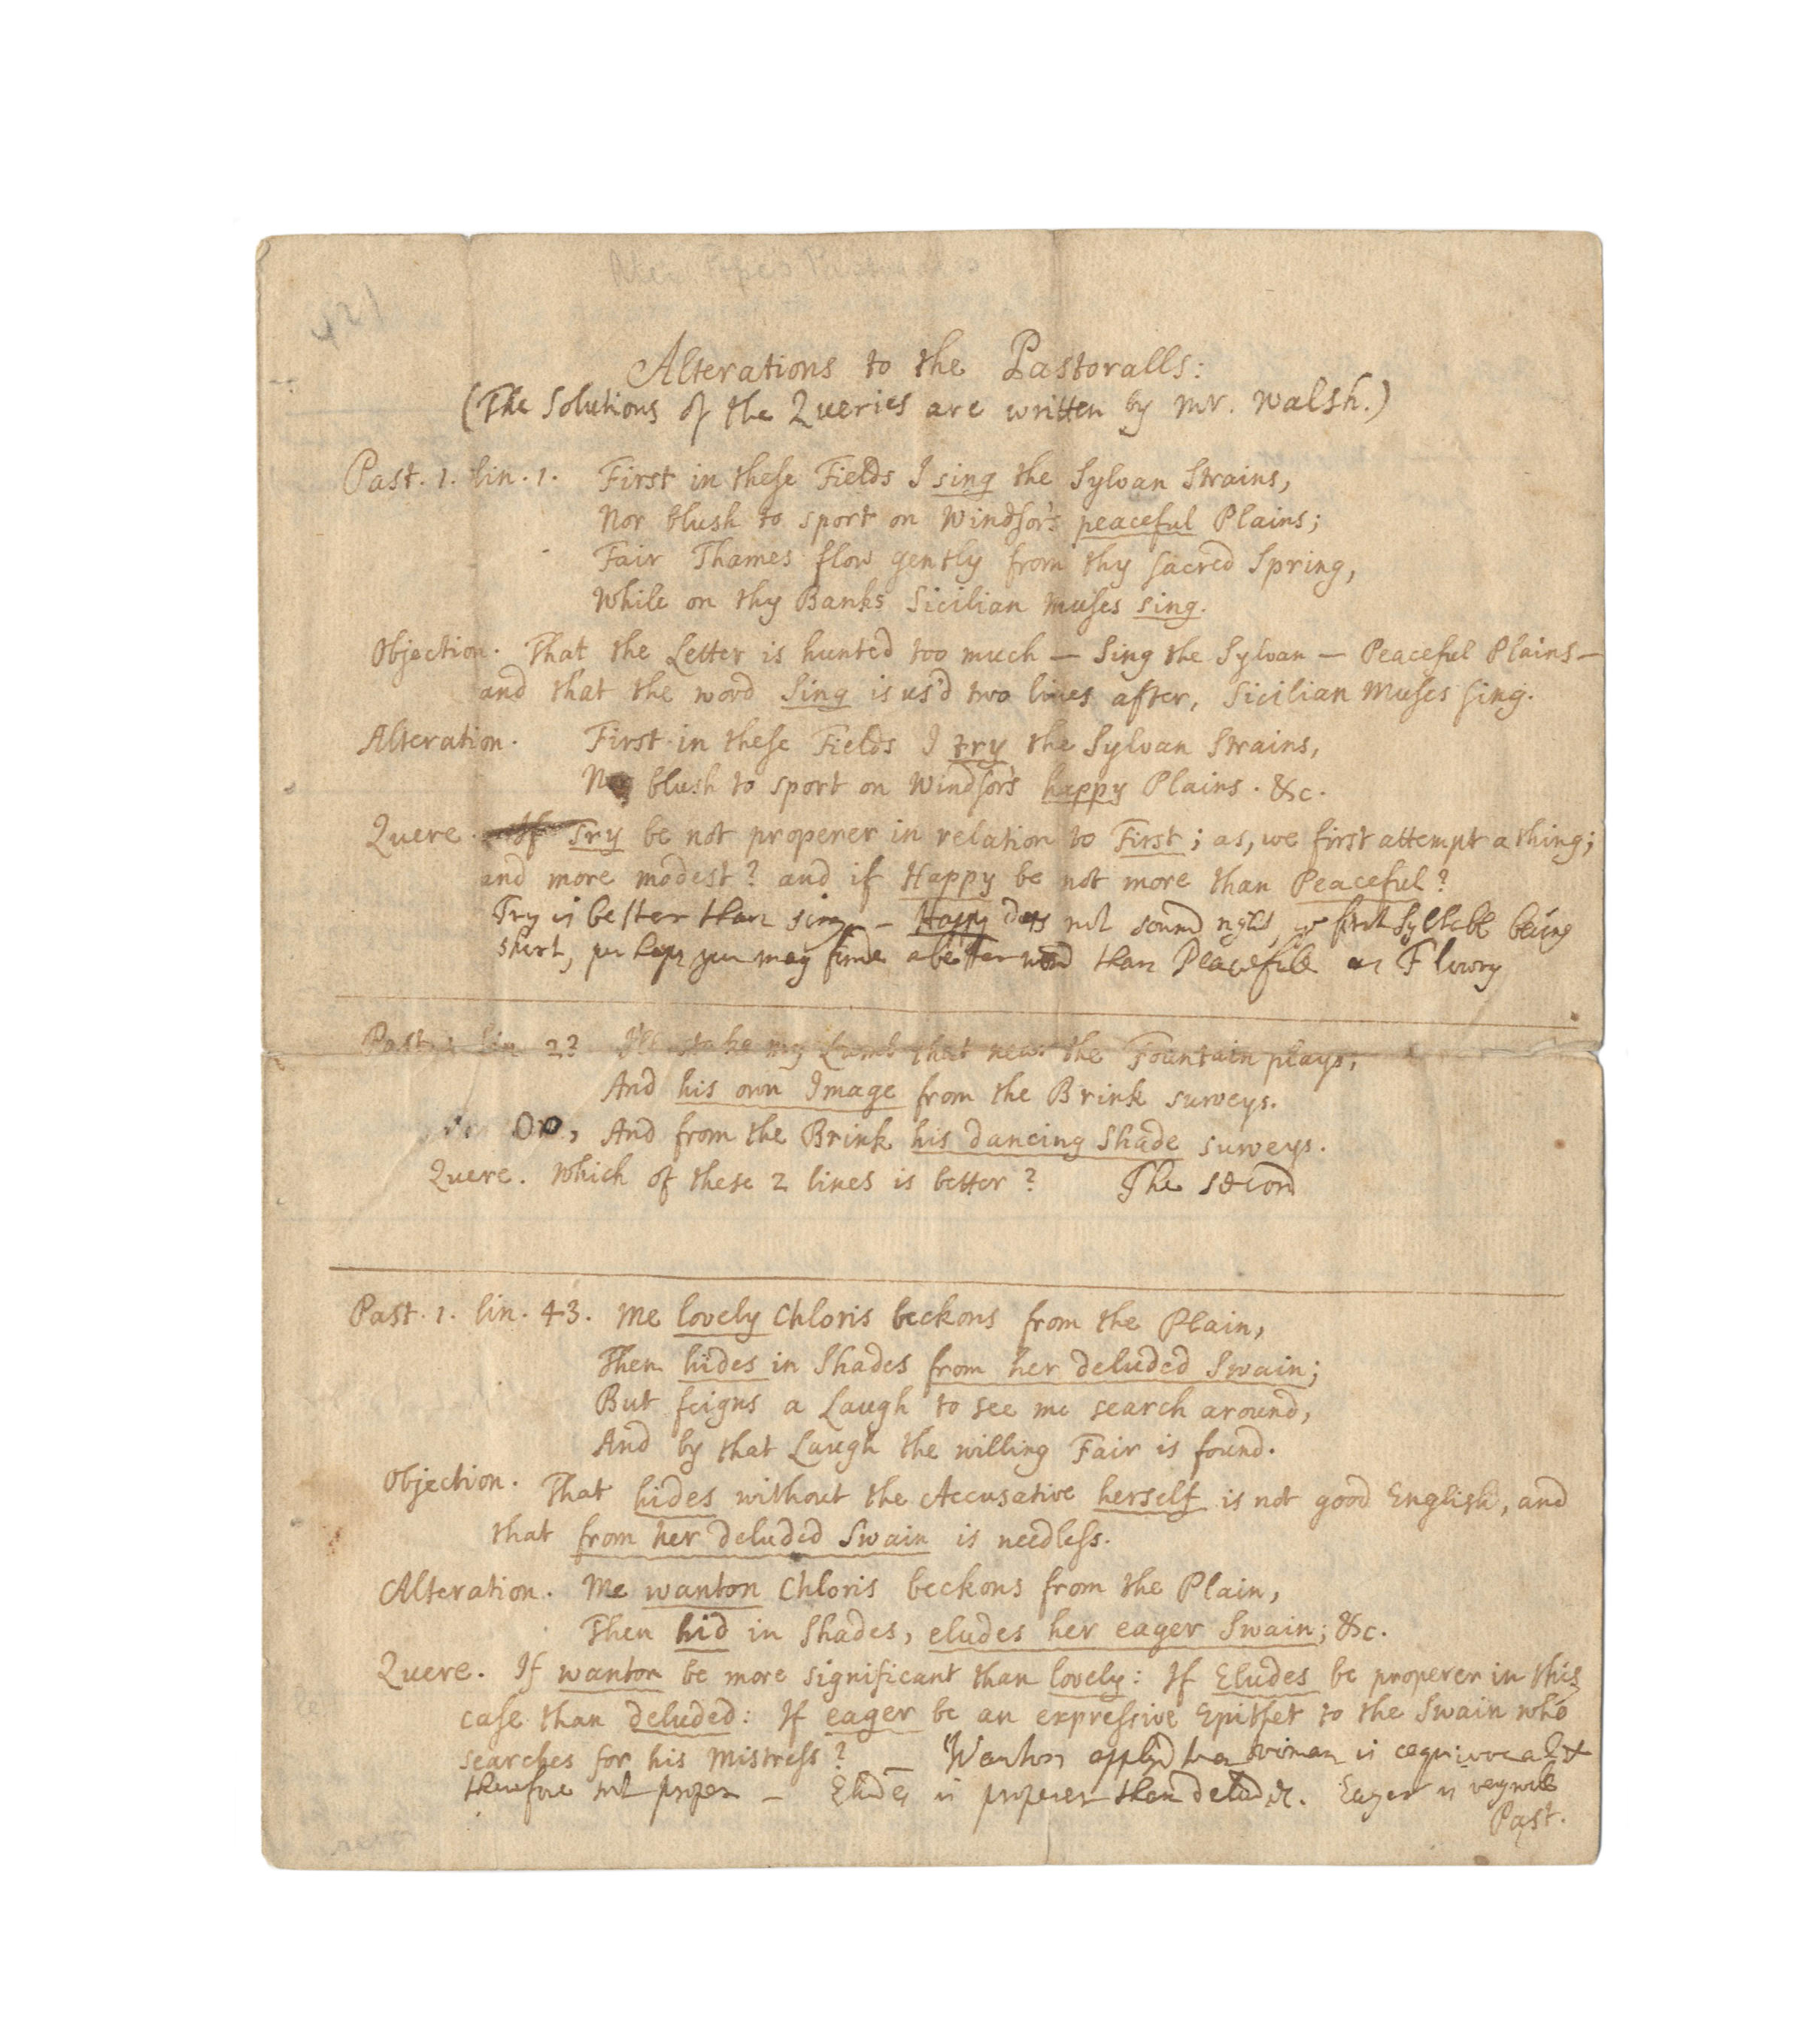 Alterations to the Pastoralls:
(The Solutions of the Queries are written by Mr. Walsh.)
Past. 1. lin. 1. First in these Fields I sing the Sylvan Strains,
Nor blush to sport on Windsor's peaceful Plains;
Fair Thames flow gently from thy sacred Spring,
While on thy Banks Sicilian Muses sing.
Objection. That the Letter is hunted too much — Sing the Sylvan — Peaceful Plains —
and that the word Sing is us'd two lines after, Sicilian Muses sing.
Alteration. First in these Fields I try the Sylvan Strains,
Nor blush to sport on Windsor's happy Plains. &c.
Quere. If Try be not properer in relation to First; as, we first attempt a thing;
and more modest? and if Happy be not more than Peaceful?
Try is better than sing — Happy does not sound right, ye first Syllable being
short, perhaps you may finde a better word than Peacefull as Flowry
Past. 1. lin. 23 I'll stake my Lamb that near the Fountain plays,
And his own Image from the Brink surveys.
Or, And from the Brink his dancing Shade surveys.
Quere. Which of these 2 lines is better? The second
Past. 1. lin. 43. Me lovely Chloris beckons from the Plain,
Then hides in Shades from her deluded Swain;
But feigns a Laugh to see me search around,
And by that Laugh the willing Fair is found.
Objection. That hides without the Accusative herself is not good English, and
that from her deluded Swain is needless.
Alteration. Me wanton Chloris beckons from the Plain,
Then hid in Shades, eludes her eager Swain; &c.
Quere. If wanton be more significant than lovely: If Eludes be properer in this
case than deluded: If eager be an expressive Epithet to the Swain who
searches for his Mistress? Wanton applyd to a woman is equivocal &
therefore not proper — Eludes is properer than deluded. Eager is very well
Past.